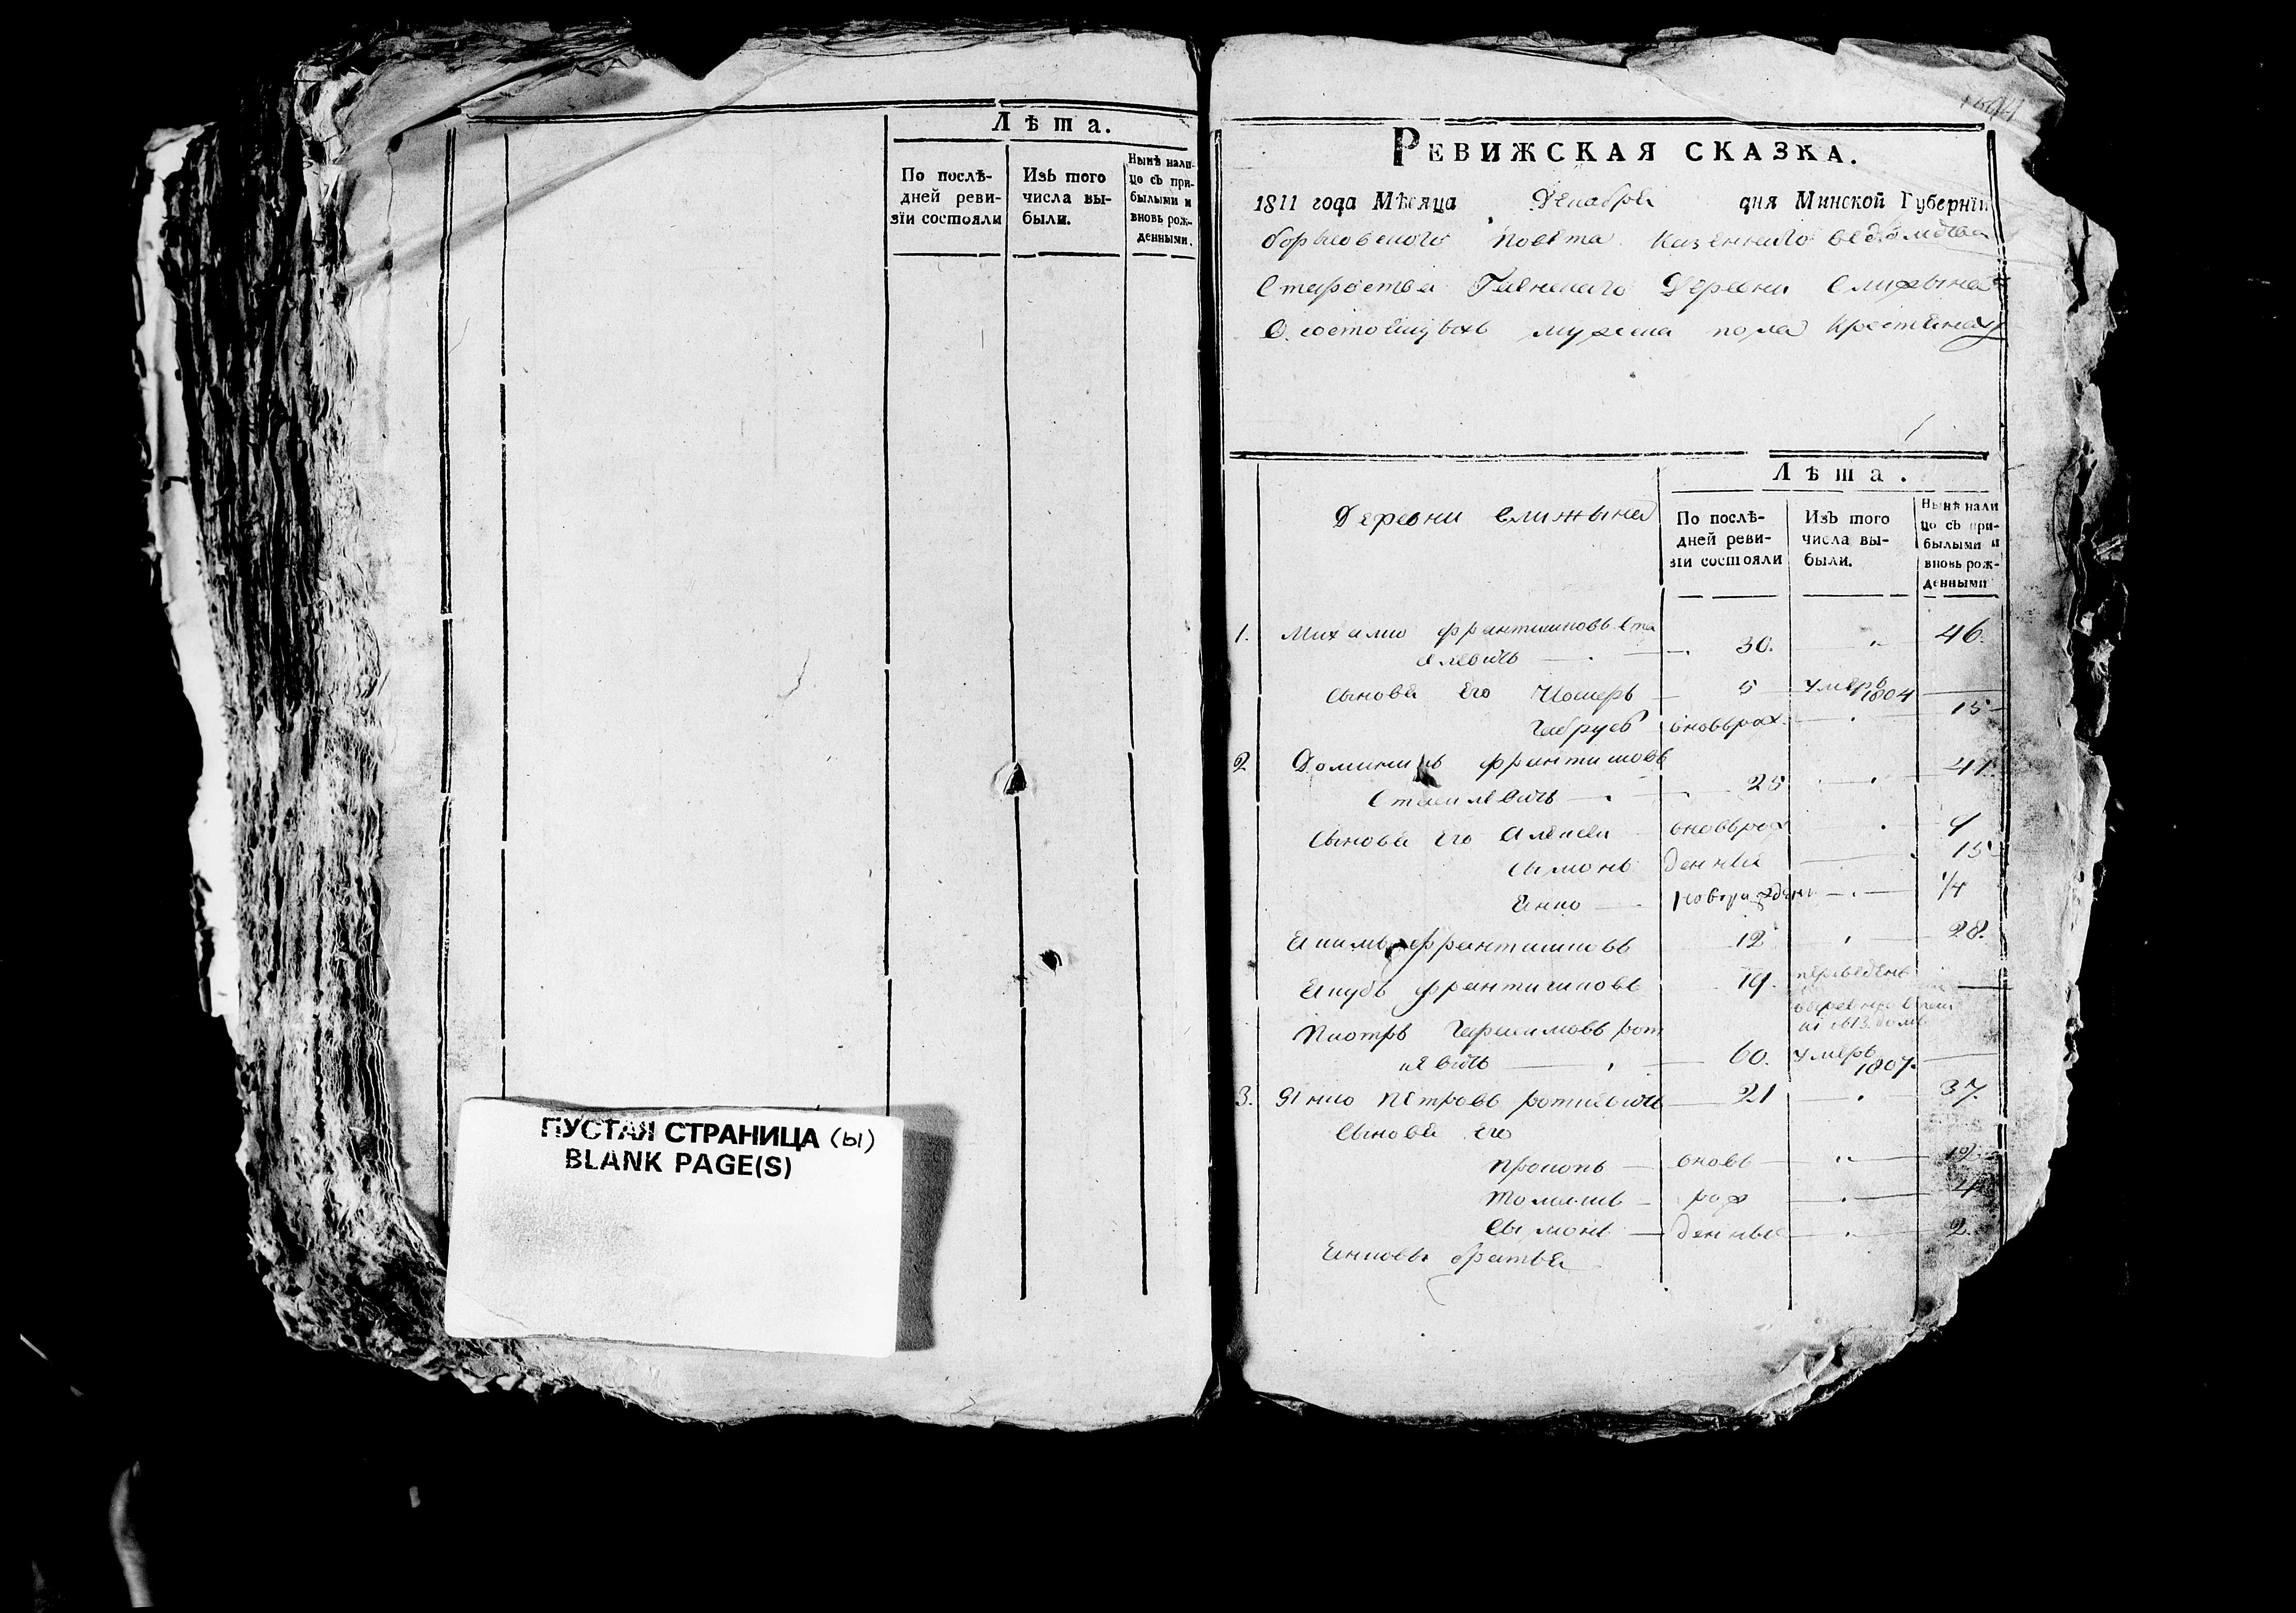 Лѣта.
По послѣ-
дней реви-
зїи состояли
Изъ того
числа вы-
были.
Нынѣ нали-
цо съ при-
былыми и
вновь рож-
денными.
ПУСТАЯ СТРАНИЦА (ы)
BLANK PAGE(S)
РЕВИЖСКАЯ СКАЗКА.
1811 года Мѣсяца Декабря дня Минской Губернїи
борысовского повѣта казенного ведомства
Староства Гаенского Деревни Слижына
О состоящихъ мужска пола крестянахъ
Лѣта.
Деревни Слижына
По послѣ-
дней реви-
зїи состояли
Изъ того
числа вы-
были.
Нынѣ нали
цо съ при-
былыми и
вновь рож-
денными
1. Михайло франтишковъ Ста
30. 46.
сынове Его 5 умеръ 1804
Габрусь вноврож. 15
2 Доминикъ франтишковъ
25 41.
сынове Его Алексей вноврож
сымонъ денные 15
Янко 1/4
Якимъ франтишковъ 12 28.
Якубъ франтишковъ 19. переведенъ
Пиотръ Герасимовъ рот
кевичъ 60. умеръ 1807.
3. Янко Петровъ роткевичъ 21 37.
сынове его
прокопъ вновь 12
томашъ рож 4
сымонъ денные 2.
Янковы братья